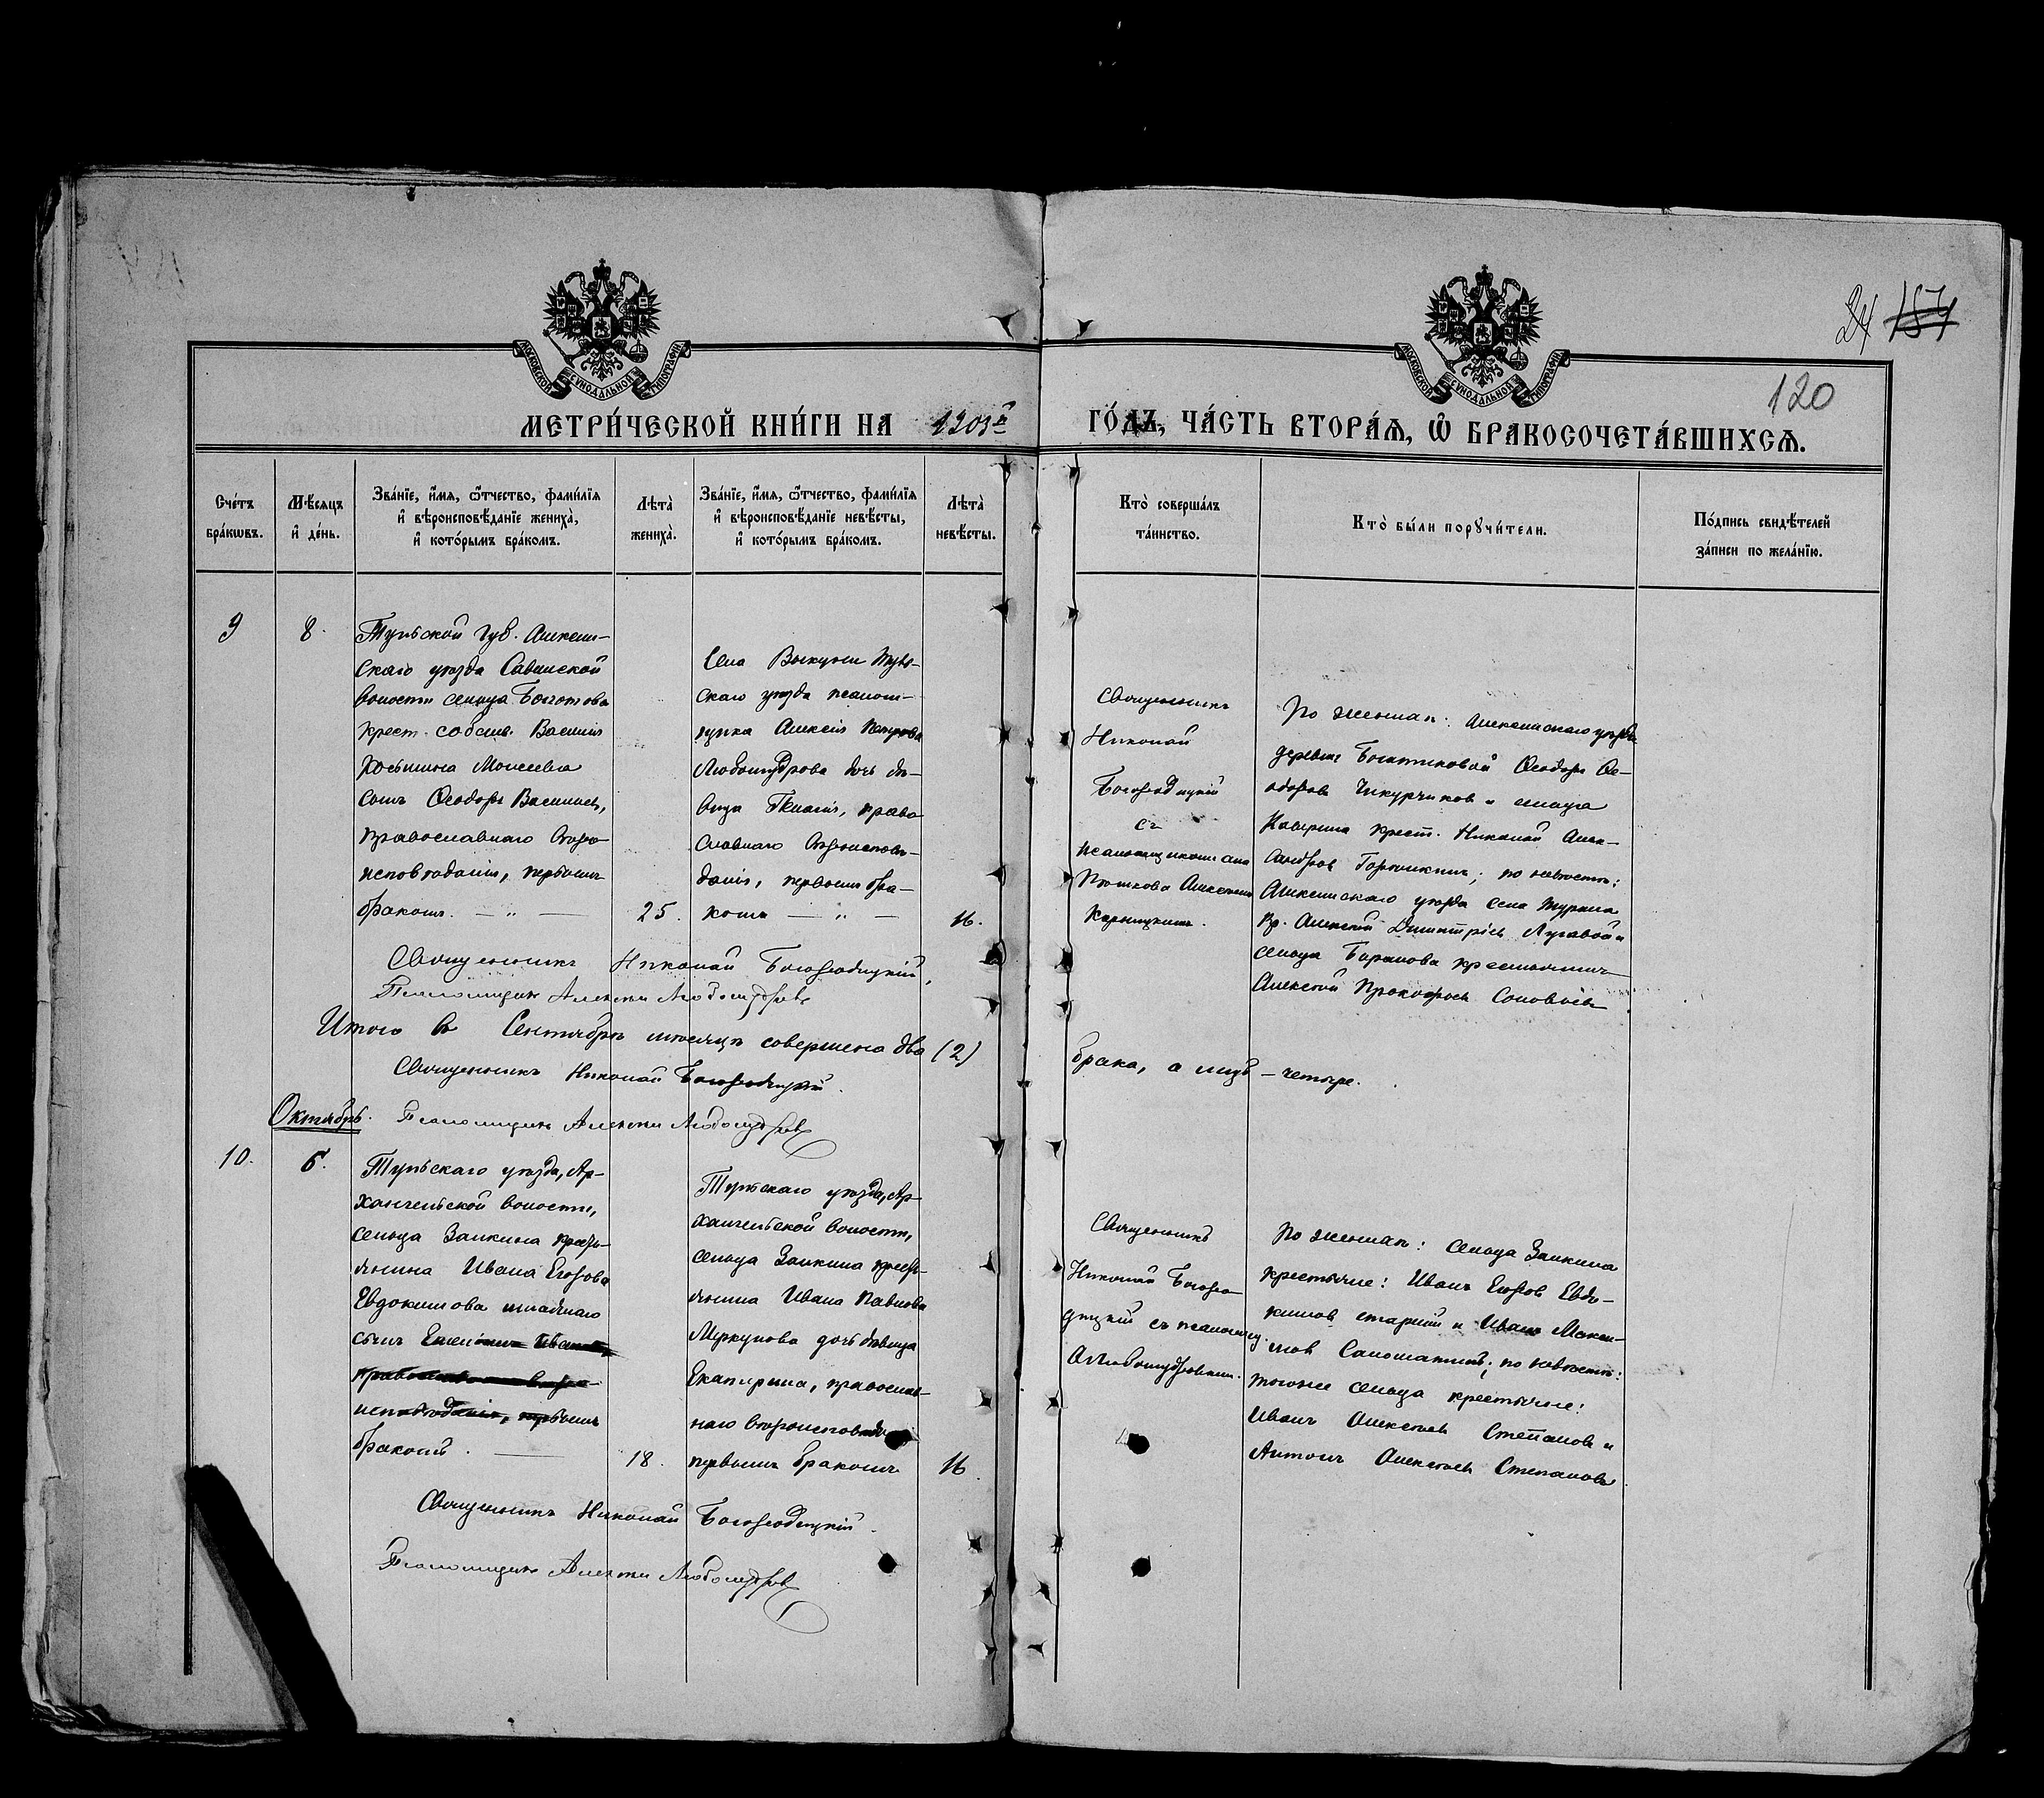 24 157
120
МОСКОВСКОЙ СѴНОДАЛЬНОЙ ТИПОГРАФІИ
МОСКОВСКОЙ СѴНОДАЛЬНОЙ ТИПОГРАФІИ
МЕТРИ́ЧЕСКОЙ КНИ́ГИ НА 1903й ГО́ДЪ, ЧА́СТЬ ВТОРА́Ѧ, Ѡ БРАКОСОЧЕТА́ВШИХСѦ.
Сче́тъ
бра́кѡвъ.
Мѣ́сѧцъ
и҆ де́нь.
Зва́нїе, и҆́мѧ, ѻ҆́тчество, фами́лїѧ
и҆ вѣроисповѣ́данїе жениха̀,
и҆ кото́рымъ бра́комъ.
Лѣта̀
жениха̀.
Зва́нїе, и҆́мѧ, ѻ҆́тчество, фами́лїѧ
и҆ вѣроисповѣ́данїе невѣ́сты,
и҆ кото́рымъ бра́комъ.
Лѣта̀
невѣ́сты.
Кто̀ соверша́лъ
та́инство.
Кто̀ бы́ли порꙋчи́тели.
По́дпись свидѣ́телей
за́писи по жела́нїю.
9
8.
Тульской Губ. Алексин-
скаго уѣзда Савинской
волости сельца
крест. собств. Василія
Моисеева
сынъ Ѳеодоръ Васильевъ,
православнаго вѣро-
исповѣданія, первымъ
бракомъ. — „ —
25.
Села Туль-
скаго уѣзда псалом-
щика Алексія Петрова
Любомудрова дочь дѣ-
вица право
славнаго вѣроисповѣ-
данія, первымъ бра-
комъ — „ —
16.
Священникъ
Николай
Богородицкій
съ
псаломщикомъ села
Алексѣемъ
По женихѣ: Алексинскаго уѣзда
деревни Ѳеодоръ Ѳе-
одоровъ и сельца
крест. Николай Алек-
сандровъ по невѣстѣ:
Алексинскаго уѣзда села
Кр. Алексѣй Димитріевъ и
сельца Баранова крестьянинъ
Алексѣй Прокофьевъ Соловьевъ
Священникъ Николай Богородицкій,
Псаломщикъ Алексѣй Любомудровъ
Итого въ Сентябрѣ мѣсяцѣ совершено два (2)
брака, а лицъ – четыре.
Священникъ Николай Богородицкій.
Октябрь. Псаломщикъ Алексѣй Любомудровъ
10.
5.
Тульскаго уѣзда, Ар-
хангельской волости,
сельца Заикина кресть-
янина Ивана Егорова
Евдокимова младшаго
сынъ
исповѣданія, первымъ
бракомъ. —
18.
Тульскаго уѣзда, Ар-
хангельской волости,
сельца Заикина кресть-
янина Ивана Павлова
Меркулова дочь дѣвица
Екатерина, православ-
наго вѣроисповѣда
первымъ бракомъ
16.
Священникъ
Николай Богоро-
дицкій съ псаломщ.
А. Любомудровымъ.
По женихѣ: сельца Заикина
крестьяне: Иванъ Егоровъ Евдо-
кимовъ старшій и Иванъ Макси-
мовъ по невѣстѣ:
тогоже сельца крестьяне:
Иванъ Алексѣевъ Степановъ и
Антонъ Алексѣевъ Степановъ.
Священникъ Николай Богородицкій.
Псаломщикъ Алексѣй Любомудровъ